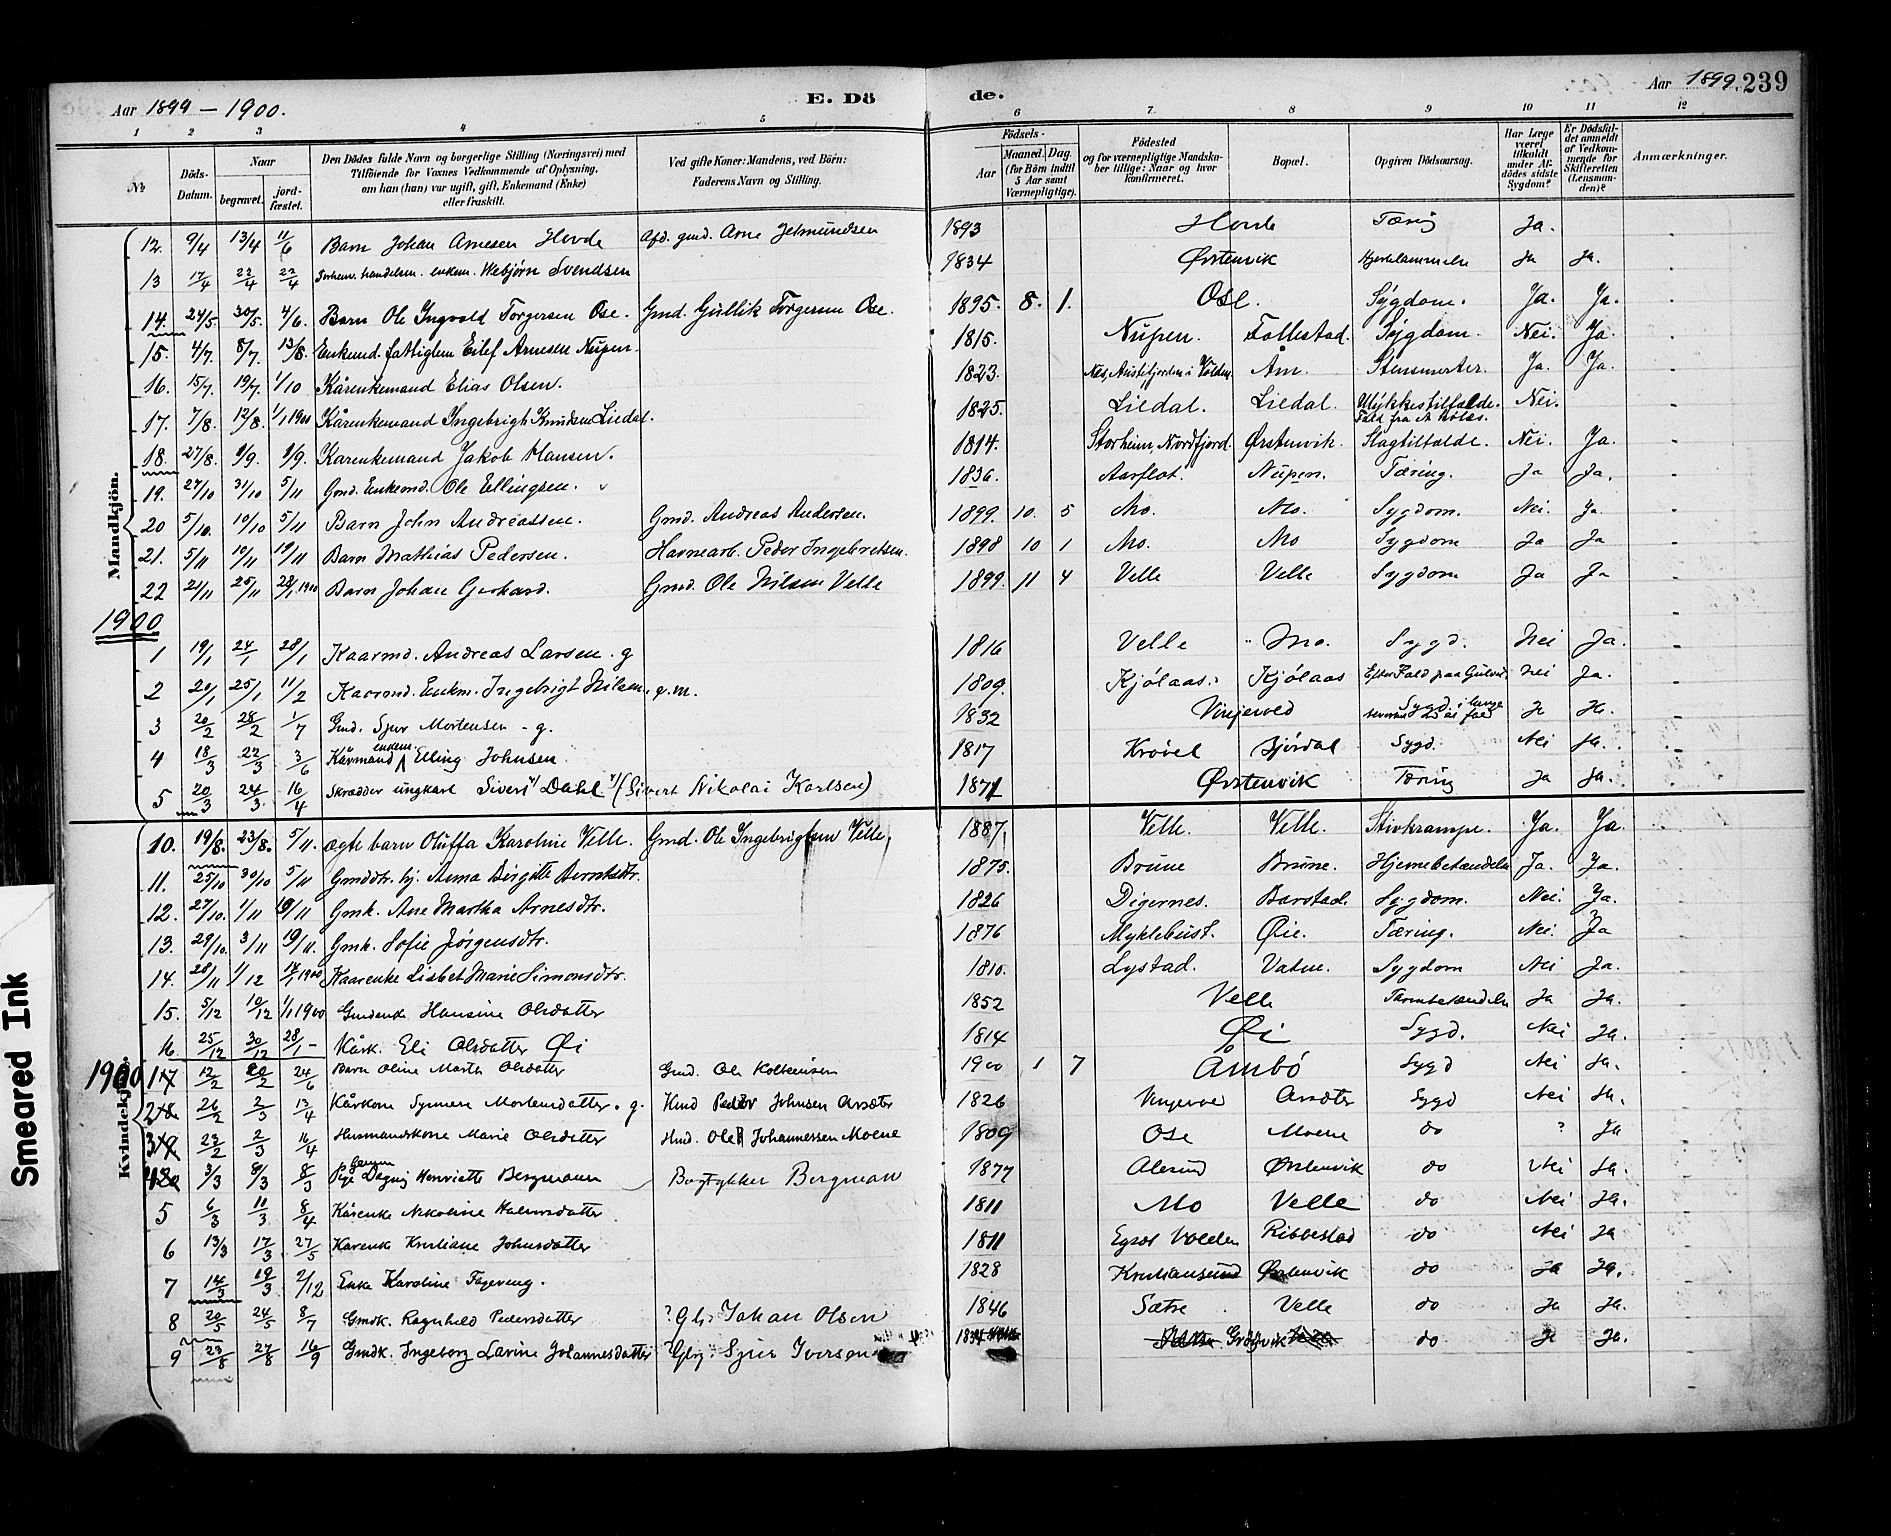 Aar 1899 — 1900.
E. Dö
de.
Aar 1899. 239
1 2 3 4 5 6 7. 8 9 10 11 12
No
Döds-Datum.
Naar
begravet.
jord-fæstet.
Den Dödes fulde Navn og borgerlige Stilling (Næringsvei) med
Tilföiende for Voxnes Vedkommende af Oplysning,
om han (hun) var ugift, gift, Enkemand (Enke)
eller fraskilt.
Ved gifte Koner: Mandens, ved Börn:
Faderens Navn og Stilling.
Födsels-
Aar
Maaned. Dag.
(for Börn indtil
5 Aar samt
Værnepligtige).
Födested
og for værnepligtige Mandska-
ber tillige: Naar og hvor
konfirmeret.
Bopæl.
Opgiven Dödsaarsag.
Har Læge
været
tilkaldt
under Af-
dödes sidste
Sygdom?
Er Dödsfal-
det anmeldt
af Vedkom-
mende for
Skifteretten
(Lensman-
den)?
Anmærkninger.
Mandkjön.
12. 9/4 13/4 11/6 Barn Johan Arnesen Hovde Afd. gmd. Arne Jetmundsen 1893 Hovde Tæring Ja.
13 17/4 22/4 22/4 handelsm. enkem. Webjørn Svendsen 1834 Ørstenvik Hjertelammelse Ja Ja.
14. 24/5. 30/5. 4/6. Barn Ole Ingvald Torgersen Ose. Gmd. Gullik Torgersen Ose. 1895. 8. 1. Ose. Sygdom. Ja. Ja.
15. 4/7. 8/7. 13/8. Enkemd. fattiglem Eilef Arnesen Nupen. 1815. Nupen. Follestad. Sygdom. Nei. Ja.
16. 15/7. 19/7. 1/10 Kårenkemand Elias Olsen. 1823. Nes, Austefjorden i Volden Åm. Stensmerter. Ja. Ja.
17. 7/8. 12/8. 1/1 1900 Kårenkemand Ingebrigt Knudsen Liedal. 1825. Liedal. Liedal. Ulykkestilfælde. Fald fra et Nei.
18. 27/8. 1/9. 1/9. Kårenkemand Jakob Hansen. 1814. Storheim, Nordfjord. Ørstenvik. Slagtilfælde. Nei. Ja.
19. 27/10 31/10 5/11 Gmd. Enkemd. Ole Ellingsen. 1836. Aarflot. Nupen. Tæring. Ja Ja.
20 5/10. 10/10 5/11 Barn John Andreassen. Gmd. Andreas Andersen. 1899. 10. 5 Mo. Mo. Sygdom. Nei. Ja
21. 5/11 10/11 19/11 Barn Mathias Pedersen. Havnearb. Peder Ingebretsen. 1898 10 1 Mo. Mo Sygdom Ja Ja
22 21/11 25/11 28/1 1900 Barn Johan Gerhard. Gmd. Ole Nilsen Velle 1899. 11 4 Velle Velle Sygdom Ja Ja
1900
1 19/1 24/1 28/1 Kaarmd. Andreas Larsen. g 1816 Velle Mo. Sygd. Nei Ja.
2 20/1 25/1 11/2 Kaarmd. Enkm. Ingebrigt Nilsen. g.m. 1809. Kjølaas. Kjølaas Efter Fald paa Gulvet. Nei Ja.
3 20/2 28/2 1/7 Gmd. Sjur Mortensen - g. 1832 Vinjevold Sygd. i lunge Ja Ja.
4 18/3 22/3 3/6 Kårmand enkem. Elling Johnsen 1817 Krøvel Bjørdal Sygd. Nei Ja.
5 20/3 24/3 16/4 Skrædder ungkarl Sivert Dahl (Sivert Nikolai Karlsen) 1871 Ørstenvik Tæring Ja Ja.
Kvindekjön.
10. 19/8. 23/8. 5/11. ægte barn Oluffa Karoline Velle. Gmd. Ole Ingebrigtsen Velle. 1887. Velle. Velle. Stivkrampe. Ja. Ja.
11. 25/10 30/10 5/11 Gmddtr. Anna Birgitte Berntsdtr. 1875. Brune Brune. Hjernebetændelse Ja. Ja.
12. 27/10. 1/11 19/11 Gmk. Ane Martha Arnesdtr. 1826 Digernes. Barstad. Sygdom. Nei. Ja.
13. 29/10. 3/11 19/11. Gmk. Sofie Jörgensdtr. 1876 Myklebust. Øie. Tæring. Nei. Ja
14. 28/11 1/12 14/1 1900 Kaarenke Lisbet Marie Simonsdtr. 1810. Lystad. Vatne. Sygdom Nei Ja.
15. 5/12 10/12 1/1 1900 Gmdenke Hansine Olsdatter 1852 Velle Tarmbetændelse Ja Ja.
16 25/12 30/12 28/1 - Kårk. Eli Olsdatter Øi 1814 Øi Sygd. Nei Ja.
1900 1 12/2 20/2 24/6 Barn Oline Marta Olsdatter Gmd. Ole Kolbeinsen 1900 1 7 Åmbø Sygd Nei Ja.
2 26/2 2/3 13/4 Kårkone Synnøve Mortensdatter. g. Kmd Peder Johnsen Årsæter 1826 Vinjevol Årsæter Sygd Nei Ja.
3 23/2 2/3 16/4 Husmandskone Marie Olsdatter Hmd. Ole Johannessen Moene 1809 Ose Moene do ? Ja
4 3/3 8/3 8/3 Pige Dagny Henriette Bergmann Bogtykker Bergman 1877 Alesund Ørstenvik do Nei Ja.
5 6/3 11/3 8/4 Kårenke Nikoline Halvorsdatter 1811 Mo Velle do Nei Ja.
6 13/3 17/3 27/5 Karenke Kristiane Johnsdatter 1811 Egset Volden Ribbestad do Nei Ja
7 14/3 19/3 2/12 Enke Karoline Fagereng. 1828 Kristiansund Ørstenvik do Ja Ja.
8 20/5 24/5 8/7 Gmdk. Ragnhild Pedersdatter ? Glr. Johan Olsen 1846 Sætre Velle do Ja Ja.
9 23/8 27/8 16/9 Gmdk. Ingeborg Lavine Johannesdatter ? Gbr. Sjur Iversen 1834 do Ja Ja.
Smeared Ink